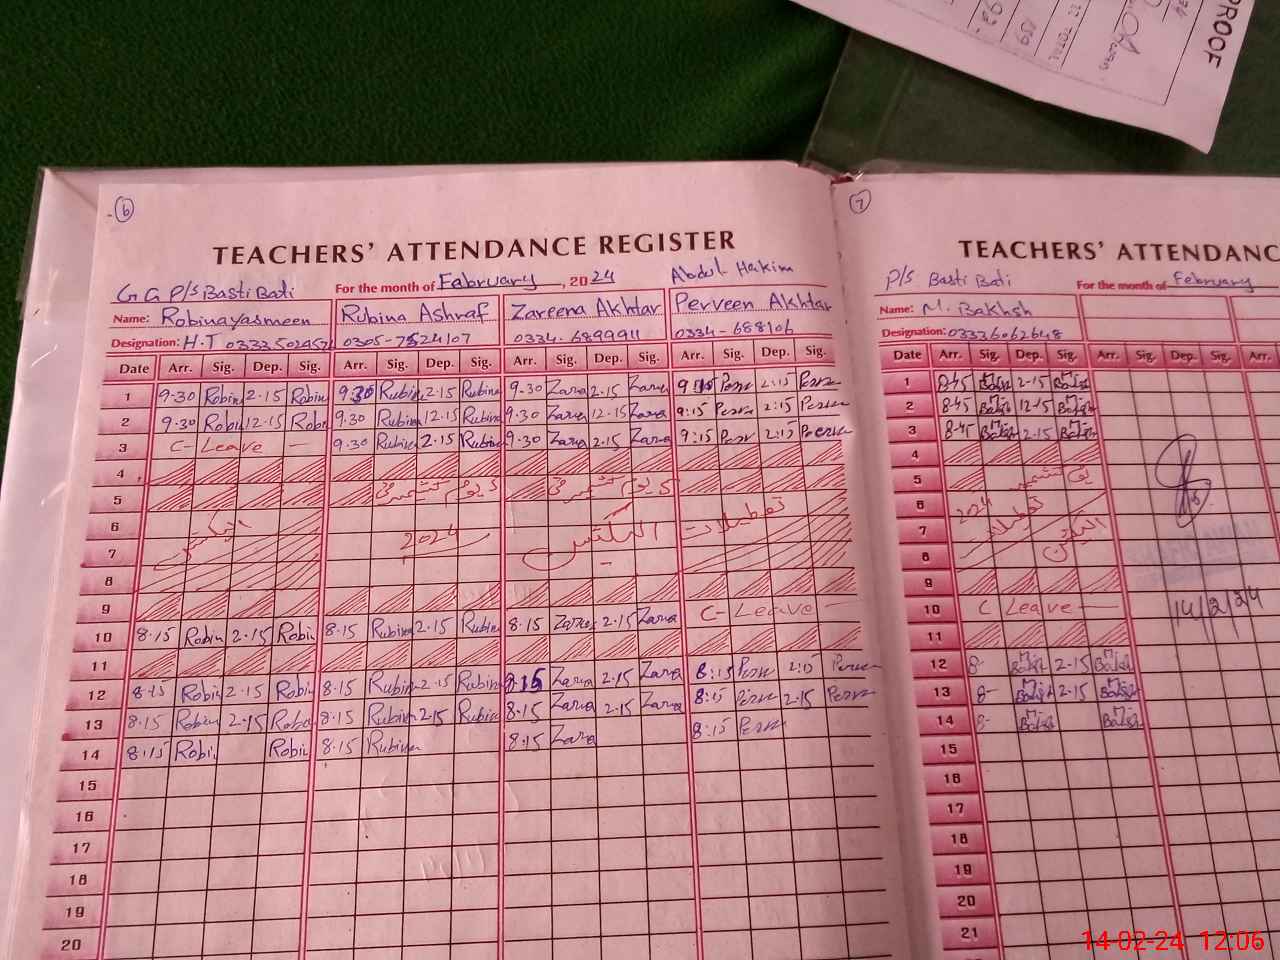 PROOF
TOTAL
6
TEACHERS' ATTENDANCE REGISTER
G G P/S Basti Bati For the month of February, 2024 Abdul Hakim
Name: Robinayasmeen Rubina Ashraf Zareena Akhtar Perveen Akhtar
Designation: H.T 0305-7524107 0334-6899911 0334-688106
Date Arr. Sig. Dep. Sig. Arr. Sig. Dep. Sig. Arr. Sig. Dep. Sig. Arr. Sig. Dep. Sig.
1 9-30 Robin 2-15 Robin 9.30 Rubina 2-15 Rubina 9-30 Zara 2.15 Zara 9 15 Perv 2:15 Perv
2 9.30 Robi 12-15 Robi 9.30 Rubina 12-15 Rubina 9.30 Zara 12-15 Zara 9:15 Perv 2:15 Perv
3 C- Leave - 9.30 Rubina 2.15 Rubina 9.30 Zara 2.15 Zara 9:15 Perv 2:15 Perv
4
5
6
7 2024 تعطیلات
8
9
10 8.15 Robin 2-15 Robin 8.15 Rubina 2-15 Rubina 8.15 Zara 2-15 Zara C- Leave -
11
12 8-15 Robin 2-15 Robin 8.15 Rubin 2-15 Rubina 8.15 Zara 2-15 Zara 8:15 Perv 2:15 Perv
13 8.15 Robin 2-15 Robi 8.15 Rubina 2-15 Rubina 8.15 Zara 2-15 Zara 8:15 Perv 2-15 Perv
14 8-15 Robi Robin 8.15 Rubina 8.15 Zara 8:15 Perv
15
16
17
18
19
20
7
TEACHERS' ATTENDANC
P/S Basti Bati For the month of February
Name: M. Bakhsh
Designation: 03336062648
Date Arr. Sig. Dep. Sig. Arr. Sig. Dep. Sig. Arr.
1 8-45 Bakhsh 2-15 Bakhsh
2 8-45 Bakhsh 12-15 Bakhsh
3 8-45 Bakhsh 2-15 Bakhsh
4
5
6 2024
7 تعطیلات
8
9
10 C Leave -
11
12 8- Bakhsh 2-15 Bakhsh
13 8- Bakhsh 2-15 Bakhsh
14 8- Bakhsh Bakhsh
15
16
17
18
19
20
21
14/2/24
14-02-24 12:06